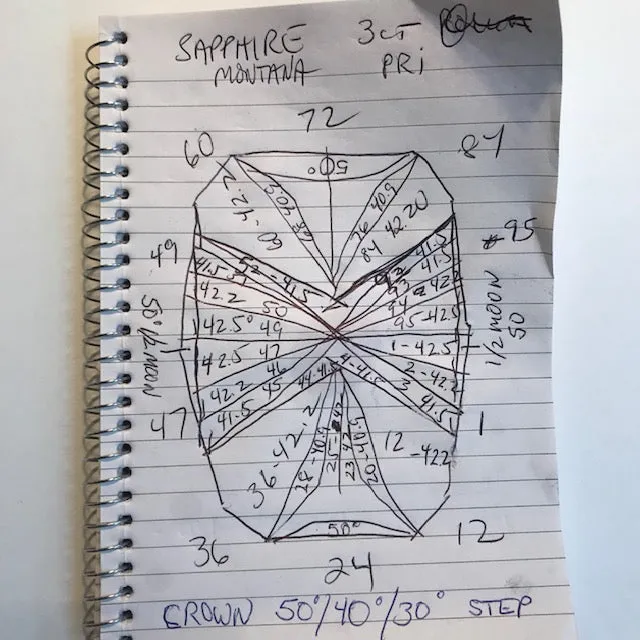 SAPPHIRE 3CT
MONTANA PRI
72
60 84
50°
60-42.2 68 40.9 76 40.9 84 42.20
49 95
52-41.5 92 41.5
41.5 93 41.5
42.2 50 94 42.2
42.5° 49 95-42.5
50° 1/2 MOON 1/2 MOON 50
42.5 47 1-42.5
42.2 46 2-42.2
41.5 45 3 41.5
44-41.5 4-41.5
47 1
36-42.2 28-40.9 25 23 42 20-40.9 12-42.2
50°
36 12
24
CROWN 50°/40°/30° STEP